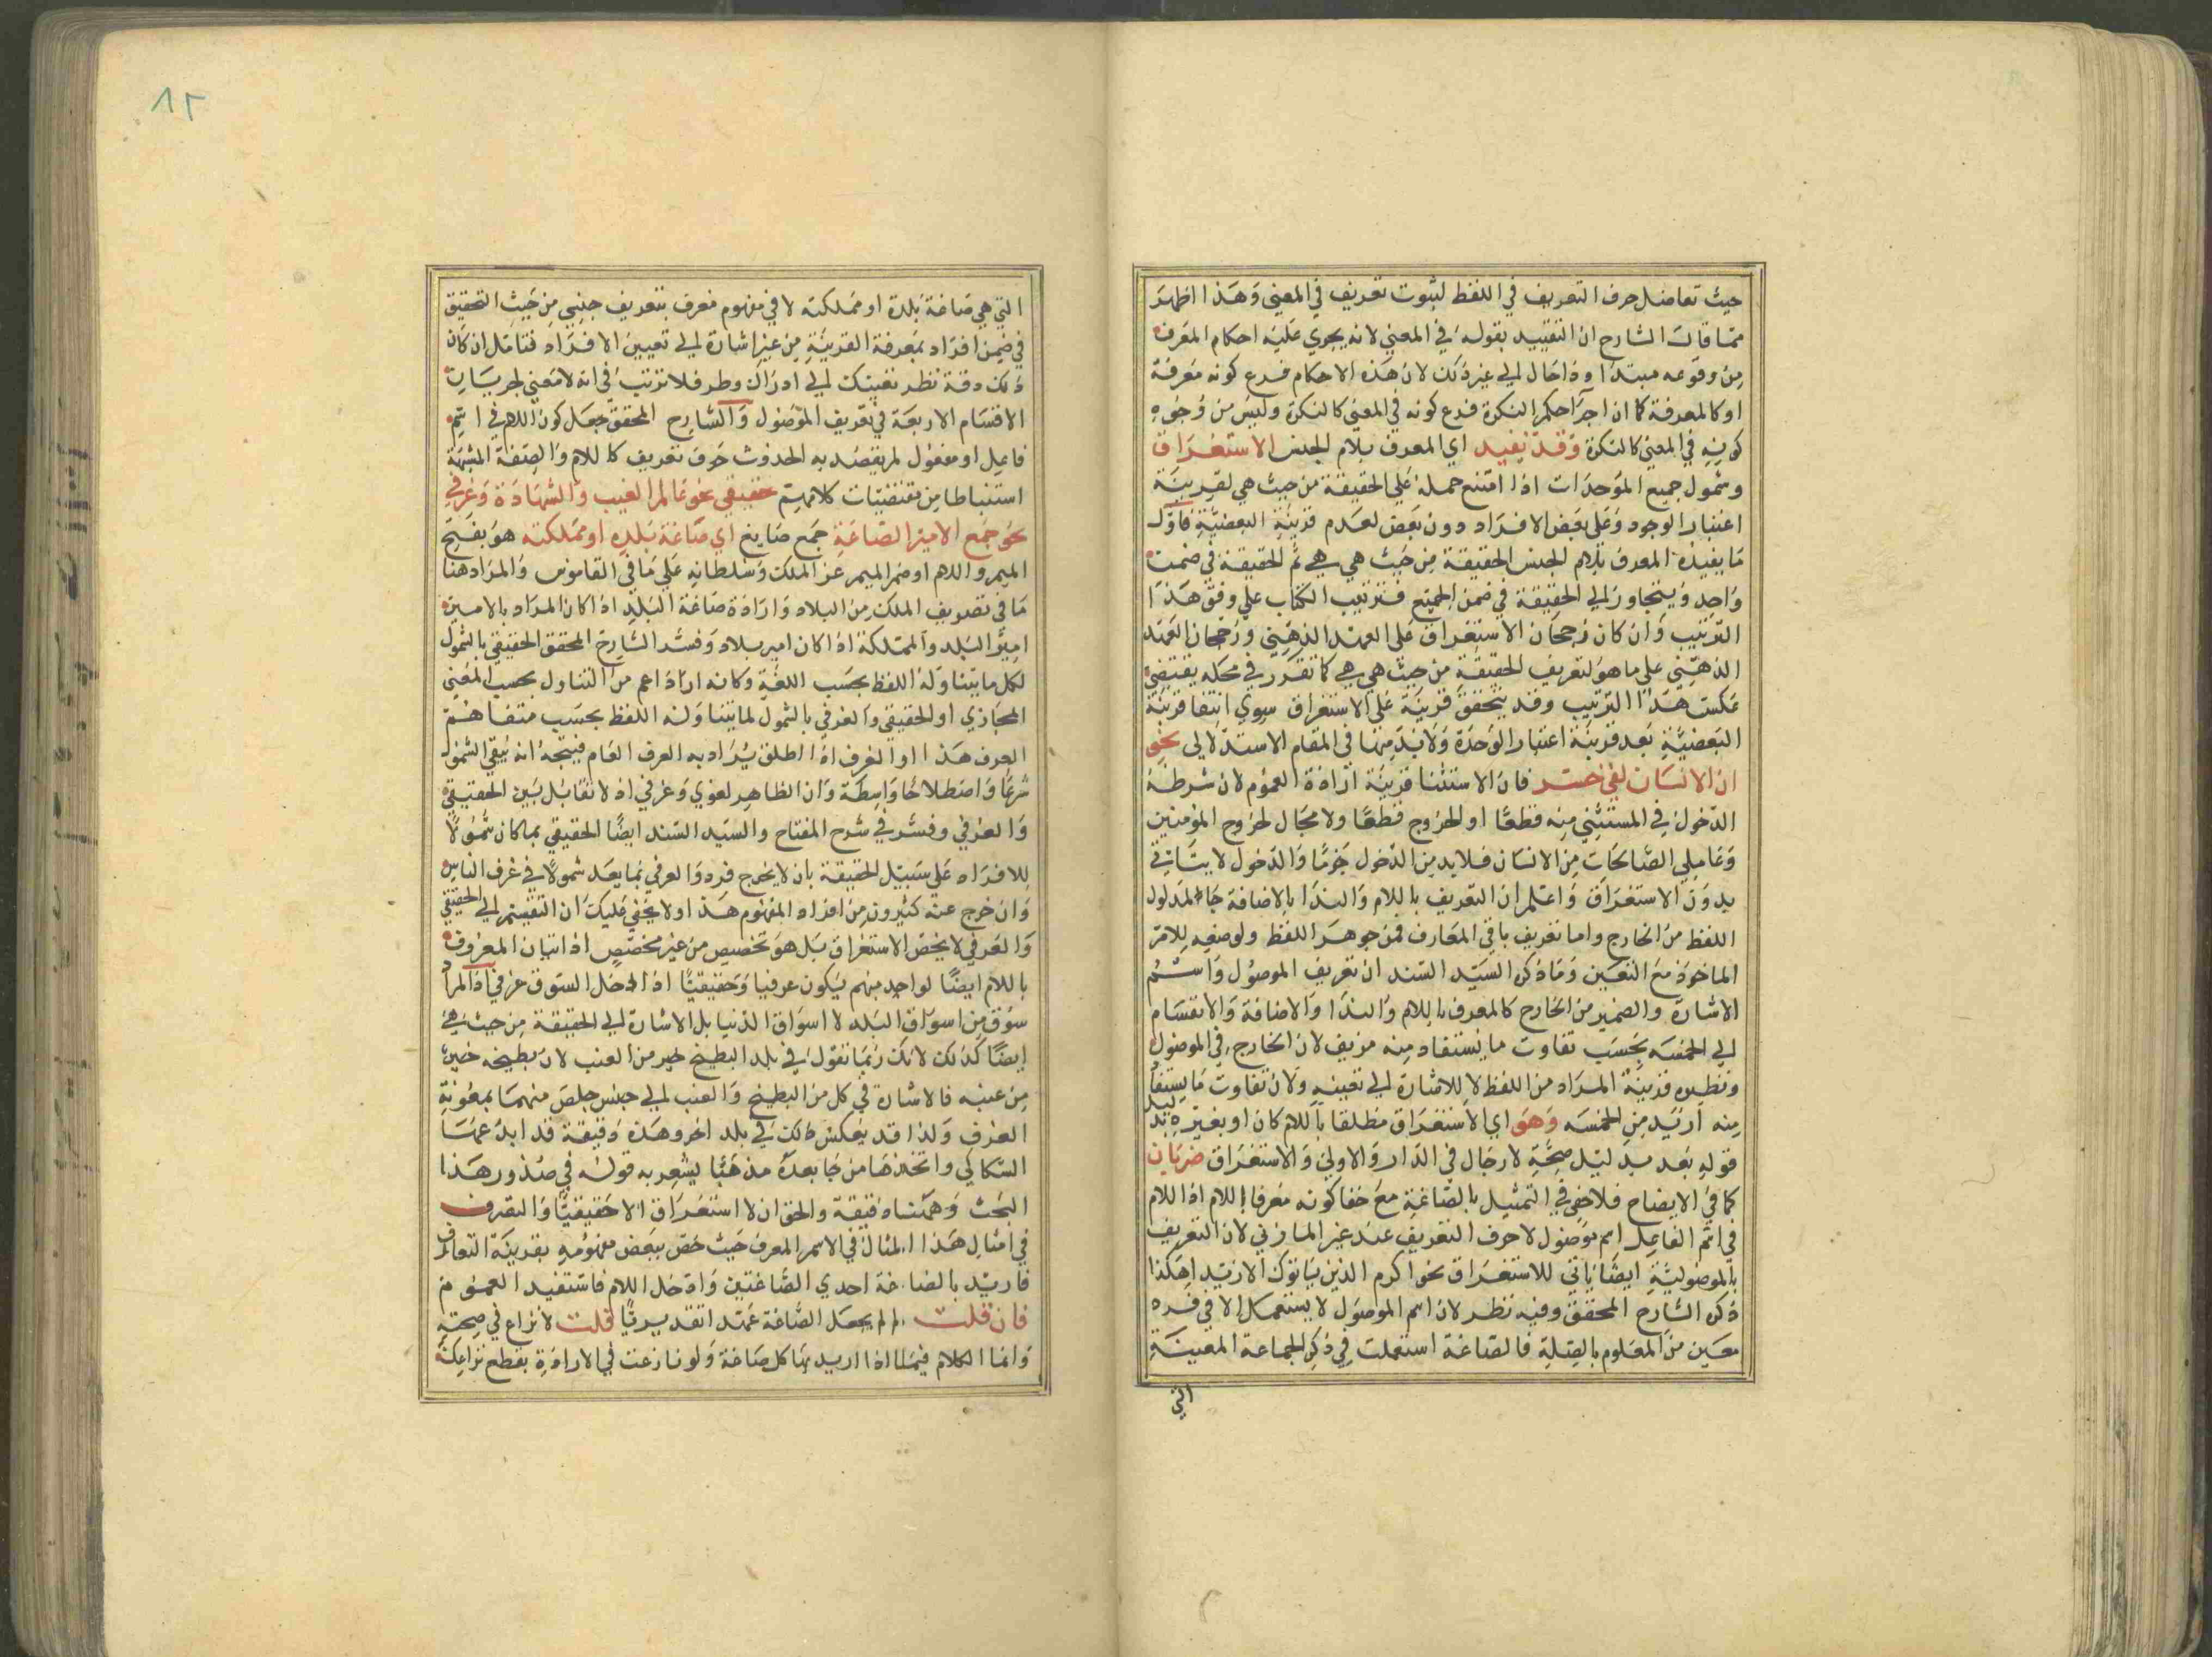 حيث تعاضل حرف التعريف في اللفظ لثبوت تعريف في المعني وهذا اظهر
مما قال الشارح ان التقييد بقوله في المعني لانه يجري عليه احكام المعرف
من وقوعه مبتدا وذا حال الي غير ذلك لان هذه الاحكام فرع كونه معرفة
او كالمعرفة كما ان اجرآ حكم النكرة فرع كونه في المعني كالنكرة وليس من وجوه
كونه في المعني كالنكرة وقد يفيد اي المعرف بلام الجنس الاستغراق
وشمول جميع الموحدات اذا امتنع حمله علي الحقيقة من حيث هي لقرينة
اعتبار الوجود وعلي بعض الافراد دون بعض لعدم قرينة البعضية فاول
ما يفيده المعرف بلام الجنس الحقيقة من حيث هي هي ثم الحقيقة في ضمن
واحد ويتجاوز الي الحقيقة في ضمن الجميع فترتيب الكتاب علي وفق هذا
الترتيب وان كان رجحان الاستغراق علي العهد الذهني ورجحان العهد
الذهني علي ما هو لتعريف الحقيقة من حيث هي هي كما تقرر في محله يقتضي
عكس هذا الترتيب وقد يتحقق قرينة علي الاستغراق سوي انتفا قرينة
البعضية بعد قرينة اعتبار الوحدة ولابد منها في المقام الاستدلالي نحو
ان الانسان لفي خسر فان الاستثنا قرينة ارادة العموم لان شرطه
الدخول في المستثني منه قطعا او الخروج قطعا ولا مجال لخروج المؤمنين
وعاملي الصالحات من الانسان فلابد من الدخول جزما والدخول لا يتاتي
بدون الاستغراق واعلم ان التعريف باللام والندا بالاضافة جا لمدلول
اللفظ من الخارج واما تعريف باقي المعارف فمن جوهر اللفظ ولوضعه للامر
الماخوذ مع التعين وما ذكره السيد السند ان تعريف الموصول واسم
الاشارة والضمير من الخارج كالمعرف باللام والندا والاضافة والانقسام
الي الخمسه بحسب تفاوت ما يستفاد منه مزيف لان الخارج في الموصول
ونظيره قرينة المراد من اللفظ لا للاشارة الي تعينه ولان تفاوت ما يستفاد
منه ازيد من الخمسه وهو اي الاستغراق مطلقا باللام كان او بغيره بدليل
قوله بعد بدليل صحة لا رجال في الدار والاولي والاستغراق ضربان
كما في الايضاح فلا خفي في التمثيل بالصاغة مع خفا كونه معرفا باللام اذ اللام
في اسم الفاعل اسم موصول لا حرف التعريف عند غير المازني لان التعريف
بالموصولية ايضا ياتي للاستغراق نحو اكرم الذين ياتوك الا زيدا هكذا
ذكره الشارح المحقق وفيه نظر لان اسم الموصول لا يستعمل الا في فرد
معين من المعلوم بالصلة فالصاغة استعملت في ذكر الجماعة المعينة
التي
٨٢
التي هي صاغة بلدة او مملكته لا في مفهوم معرف بتعريف جنسي من حيث التحقيق
في ضمن افراد بمعرفة القرينة من غير اشارة الي تعيين الافراد فتامل ان كان
ذلك دقة نظر نفيتك الي ادراك وطر فلا ترتب في انه لا معني لجريان
الاقسام الاربعة في تعريف الموصول والشارح المحقق جعل كون اللام في اسم
فاعل او مفعول لم يقصد به الحدوث حرف تعريف كاللام والصفة المشبهة
استنباطا من مقتضيات كلامهم حقيقي نحو عالم الغيب والشهادة وعرفي
نحو جمع الامير الصاغة جمع صايغ اي صاغة بلده او مملكته هو بفتح
الميم واللام او ضم الميم عز الملك وسلطانه علي ما في القاموس والمراد هنا
ما في تصريف الملك من البلاد وارادة صاغة البلد اذا كان المراد بالامير
امير البلد والمملكة اذا كان امير بلاد وفسر الشارح المحقق الحقيقي بالشمول
لكل ما يتناوله اللفظ بحسب اللغة وكانه اراد اعم من التناول بحسب المعني
المجازي او الحقيقي والعرفي بالشمول لما يتناوله اللفظ بحسب متفاهم
العرف هذا او العرف اذا اطلق يراد به العرف العام فيتجه انه يبقي الشمول
شرعا واصطلاحا واسطة وان الظاهر لغوي وعرفي اذ لا تقابل بين الحقيقي
والعرفي وفسر في شرح المفتاح والسيد السند ايضا الحقيقي بما كان شمولا
للافراد علي سبيل الحقيقة بان لا يخرج فرد والعرفي بما يعد شمولا في عرف الناس
وان خرج عنه كثيرون من افراد المفهوم هذا ولا يخفي عليك ان التقسيم الي الحقيقي
والعرفي لا يخص الاستغراق بل هو تخصيص من غير مخصص اذ اتيان المعروف
باللام ايضا لواحد منهم يكون عرفيا وحقيقيا اذ ادخل السوق عرفي اذ المراد
سوق من اسواق البلد لا اسواق الدنيا بل الاشارة الي الحقيقة من حيث هي
ايضا كذلك لانك ربما تقول في بلد البطيخ خير من العنب لان بطيخه خير
من عنبه فالاشارة في كل من البطيخ والعنب الي جنس خلص منهما بمعونة
العرف ولذا قد يعكس ذلك في بلد اخر وهذه دقيقة قد ابدعها
السكاكي واتخذها من جا بعده مذهبا يشعر به قوله في صدور هذا
البحث وههنا دقيقة والحق ان لا استغراق الا حقيقيا والتصرف
في امثال هذا المثال في الاسم المعرف حيث خص ببعض مفهومه بقرينة التعارف
فاريد بالصاغة احدي الصاغتين وادخل اللام فاستفيد العموم
فان قلت لم لم يجعل الصاغة عهدا تقديريا قلت لا نزاع في صحته
وانما الكلام فيما اذا اريد بها كل صاغة ولو نازعت في الارادة بقطع نزاعك